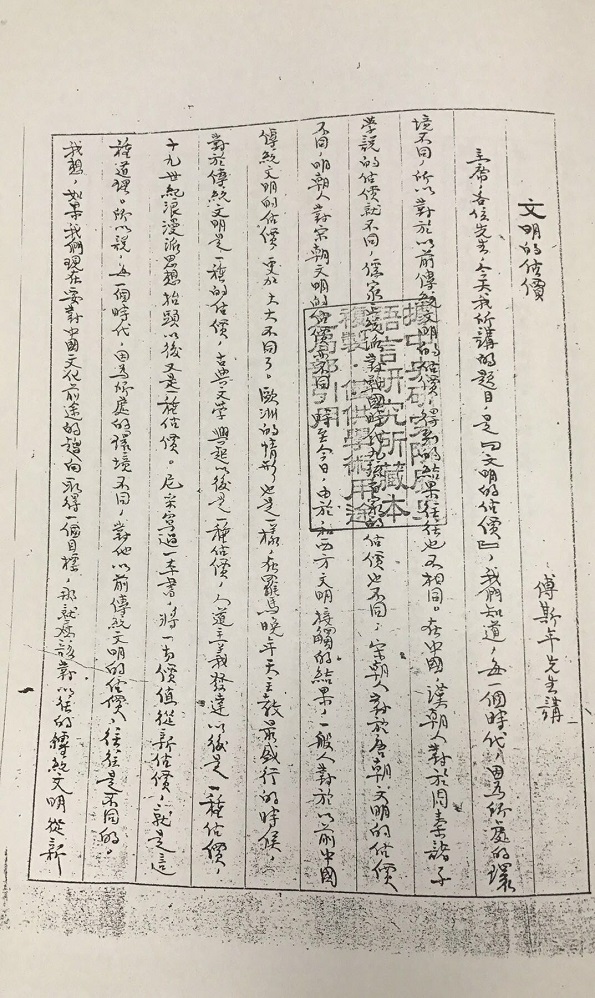 文明的估價
傅斯年先生講
主席，各位先生，今天我所講的題目，是『文明的估價』，我們知道，每一個時代，因為所處的環
境不同，所以對於以前傳統文明的估價，得到的結果往往也不相同。在中國，漢朝人對於周秦諸子
學說的估價就不同，儒家正統派對戰國時代九流百家的估價也不同，宋朝人對於唐朝文明的估價
不同，明朝人對宋朝文明的估價亦不同，時至今日，由於和西方文明接觸的結果，一般人對於以前中國
傳統文明的估價，更加大大不同了。歐洲的情形也是一樣，在羅馬晚年天主教最盛行的時候，
對於傳統文明是一種的估價，古典文學興起以後是一種估價，人道主義發達以後是一種估價，
十九世紀浪漫派思想抬頭以後又是一種估價。尼采寫過一本書，將一切價值從新估價，就是這
種道理。所以說，每一個時代，因為所處的環境不同，對他以前傳統文明的估價，往往是不同的。
我想，如果我們現在要對中國文化前途的趨向取得一個目標，那就應該對以往的傳統文明從新
語言研究所藏本
複製，僅供學術用途